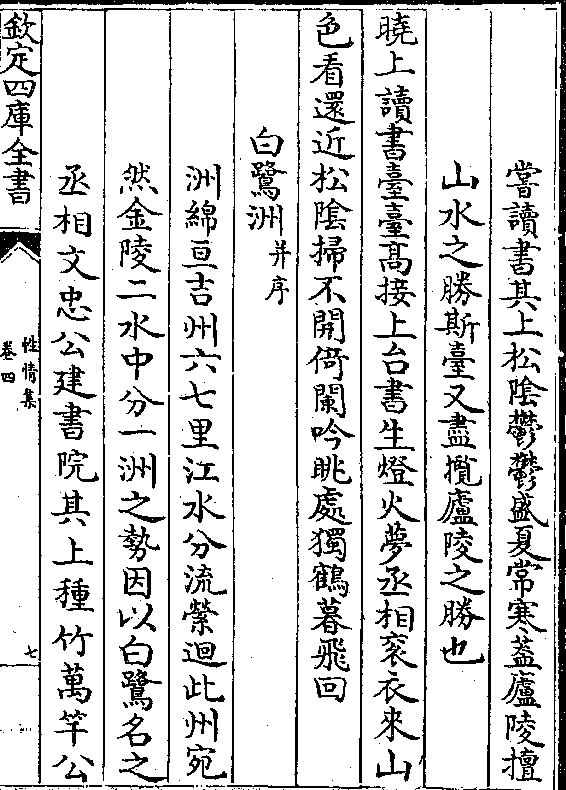 嘗讀書其上松陰鬱鬱盛夏常寒葢廬陵擅
山水之勝斯臺又盡攬廬陵之勝也
曉上讀書臺臺髙接上台書生燈火夢丞相衮衣來山
色看還近松陰掃不開倚闌吟眺處獨鶴暮飛回
白鷺洲并序
洲綿亘吉州六七里江水分流縈迴此州宛
然金陵二水中分一洲之勢因以白鷺名之
丞相文忠公建書院其上種竹萬竿公
欽定四庫全書
性情集
卷四
七